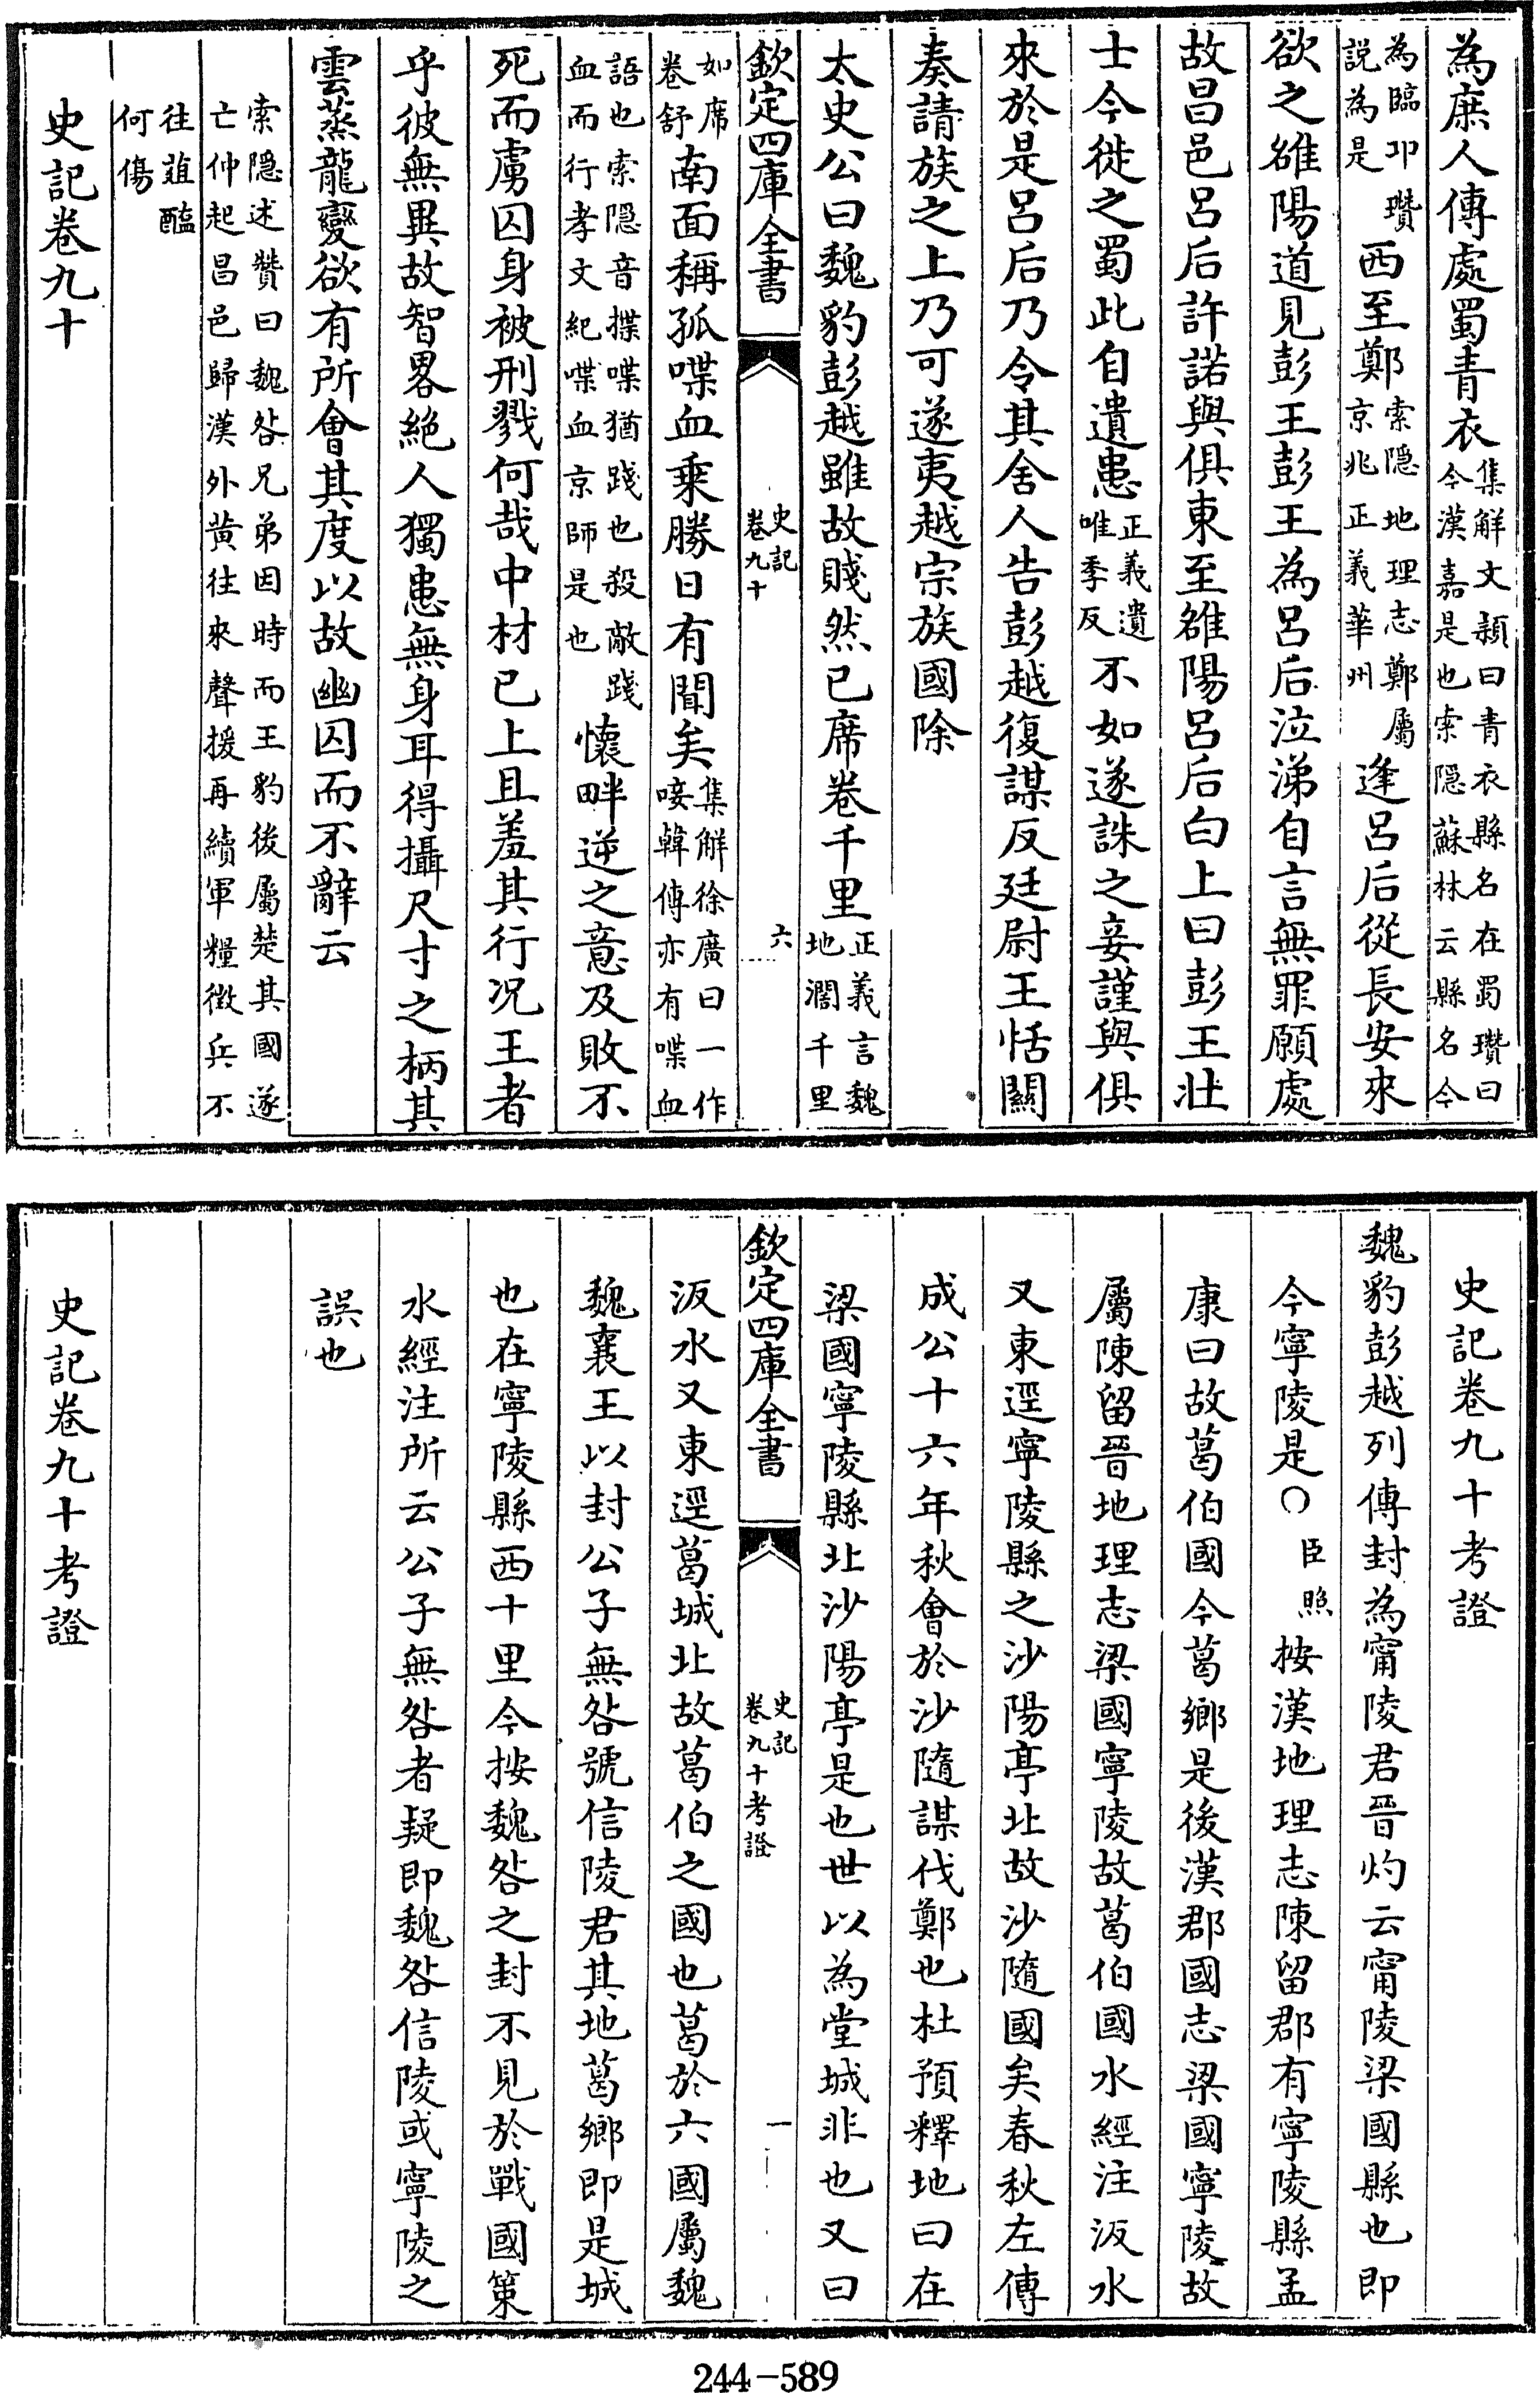 為庶人傳處蜀青衣集解文穎曰青衣縣名在蜀瓚曰今漢嘉是也索隱蘇林云縣名今
為臨卭瓚說為是西至鄭索隱地理志鄭屬京兆正義華州逢呂后從長安來
欲之雒陽道見彭王彭王為呂后泣涕自言無罪願處
故昌邑呂后許諾與俱東至雒陽呂后白上曰彭王壯
士今徙之蜀此自遺患正義遺唯季反不如遂誅之妾謹與俱
來於是呂后乃令其舍人告彭越復謀反廷尉王恬關
奏請族之上乃可遂夷越宗族國除
太史公曰魏豹彭越雖故賤然已席卷千里正義言魏地濶千里
欽定四庫全書
史記
卷九十
六
如席卷舒南面稱孤喋血乘勝日有聞矣集解徐廣曰一作唼韓傳亦有喋血
語也索隱音揲喋猶踐也殺敵踐血而行孝文紀喋血京師是也懷畔逆之意及敗不
死而虜囚身被刑戮何哉中材已上且羞其行况王者
乎彼無異故智畧絶人獨患無身耳得攝尺寸之柄其
雲蒸龍變欲有所會其度以故幽囚而不辭云
索隱述贊曰魏咎兄弟因時而王豹後屬楚其國遂
亡仲起昌邑歸漢外黃往來聲援再續軍糧徵兵不
往葅醢
何傷
史記卷九十
史記卷九十考證
魏豹彭越列傳封為甯陵君晉灼云甯陵梁國縣也即
今寧陵是〇臣照按漢地理志陳留郡有寧陵縣孟
康曰故葛伯國今葛鄉是後漢郡國志梁國寧陵故
屬陳留晉地理志梁國寧陵故葛伯國水經注汳水
又東逕寧陵縣之沙陽亭北故沙隨國矣春秋左傳
成公十六年秋會於沙隨謀伐鄭也杜預釋地曰在
梁國寧陵縣北沙陽亭是也世以為堂城非也又曰
欽定四庫全書
史記
卷九十考證
一
汳水又東逕葛城北故葛伯之國也葛於六國屬魏
魏襄王以封公子無咎號信陵君其地葛鄉即是城
也在寧陵縣西十里今按魏咎之封不見於戰國策
水經注所云公子無咎者疑即魏咎信陵或寧陵之
誤也
史記卷九十考證
244-589